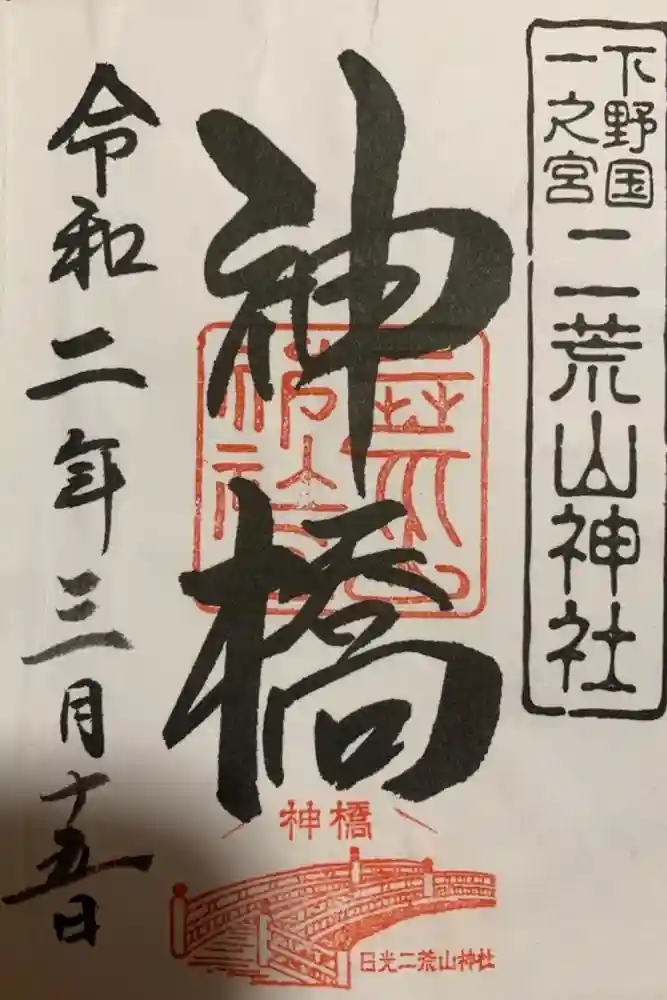 下野国
一之宮
二荒山神社
神橋
二荒山
神社
神橋
日光二荒山神社
令和二年三月十五日